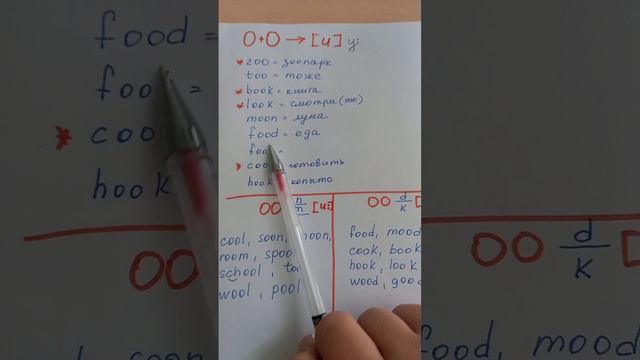 food =
foo =
* coo
hook
OO
O+O → [u] у:
* zoo = зоопарк
too = тоже
* book = книга
* look = смотри(те)
moon = луна
food = еда
=
* готовить
hook копыто
OO [u:]
cool, soon, moon,
room,
school,
wool, pool
OO d/k
food, mood
cook, book
hook, look
wood,
OO d/k
food, mood